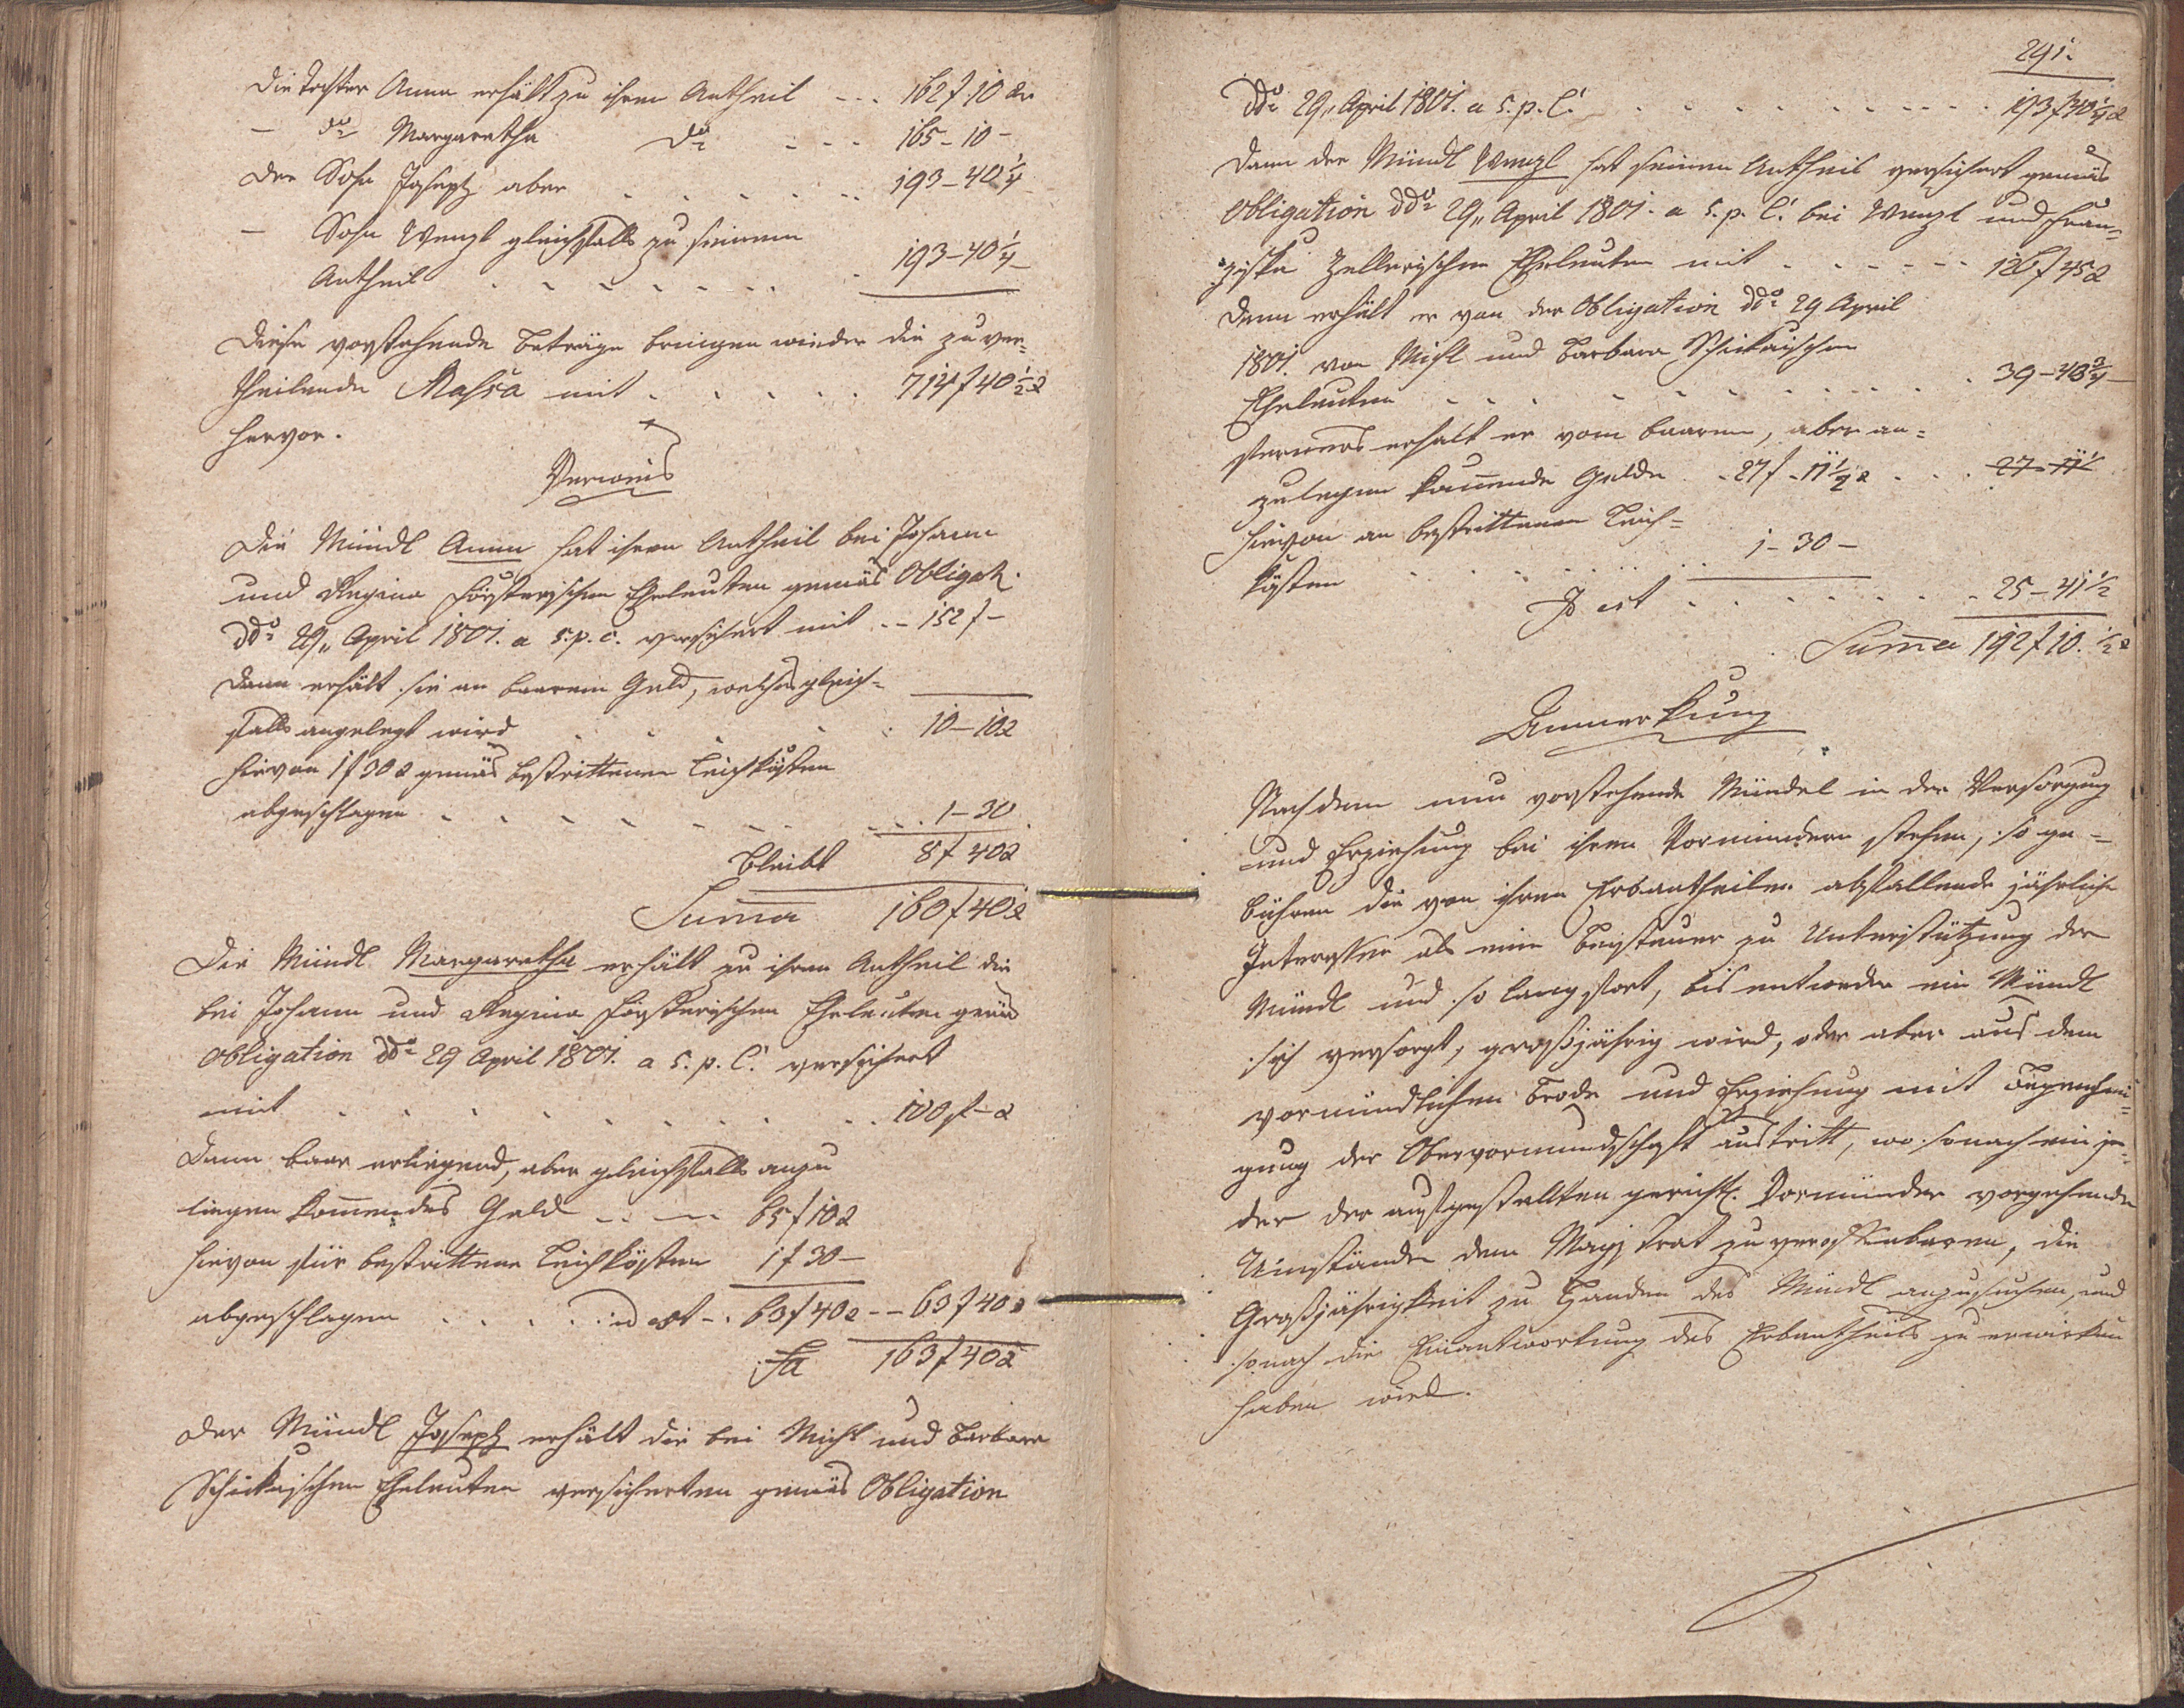 Die Tochter Anna erhält zu ihrem Antheil - - - 162 f 10 xr
— dto Margaretha dto - - - 165 - 10 -
Der Sohn Joseph aber . . . . . . 193 - 40 1/4
— Sohn Wenzl gleichfalls zu seinem
Antheil . . . . . . . . 193 - 40 1/4 -
Diese vorstehende Beträge bringen wieder die zu ver=
theilende Massa mit . . . . . 714 f 40 1/2 x
hervor.
Verweis
Die Mündl Anna hat ihren Antheil bei Johann
und Regina Försterischen Eheleuten gemäs Obligat:
ddo 29,, April 1801. a 5. p. c. versichert mit - - 152 f -
Dann erhält sie an baarem Geld, welches gleich=
falls angelegt wird . . . . . 10 - 10 x
hievon 1 f 30 x gemäs bestrittenen Leichkösten
abgeschlagen . . . . . . . . . 1 - 30
Bleibt 8 f 40 x
Suma 160 f 40 x
Die Mündl Margaretha erhält zu ihren Antheil die
bei Johann und Regina Försterischen Eheleuten gemäs
Obligation ddo 29 April 1801. a 5. p. C. versichert
mit . . . . . . . . . . 100 f - x
Dann baar erliegend, aber gleichfalls anzu
liegen kommendes Geld - - - 65 f 10 x
hievon für bestrittene Leichkösten 1 f 30 -
abgeschlagen . . . . . id est - . 63 f 40 x - - 63 f 40 x
Sa 163 f 40 x
Der Mündl Joseph erhält die bei Michl und Barbara
Schickaischen Eheleuten versicherten gemäs Obligation
291.
ddo 29,, April 1801. a 5. p. C. . . . . . . . . . 193 f 40 1/4 x
Dann der Mündl Wenzl hat seinen Antheil versichert gemäs
Obligation ddo 29,, April 1801. a 5. p. C. bei Wenzl und Fran=
ziska Zellerischen Eheleuten mit . . . . . . 126 f 45 x
Dann erhält er von der Obligation ddo 29 April
1801. von Michl und Barbara Schickaischen
Eheleuten . . . . . . . . . . . 39 - 43 3/4 -
ferners erhält er vom baaren, aber an=
zulegen kommende Gelde . - 27 f - 11 1/2 x . . . 27 - 11 1/2
hievon an bestrittenen Leich=
kösten . . . . . . . 1 - 30 -
Id est . . . . . . . . 25 - 41 1/2
Suma 192 f 10. 1/2 x
Anmerkung
Nachdem nun vorstehende Mündel in der Versorgung
und Erziehung bei ihren Vormündern stehen, so ge=
bühren die von ihren Erbantheilen abfallende jährliche
Interessen als eine Beysteuer zu Unterstützung der
Mündl und so lang fort, bis entweder ein Mündl
sich versorgt, großjährig wird, oder aber aus dem
vormündlichen Brode und Erziehung mit
gung der Obervormundschaft austritt, wo sonach ein je=
der der aufgestellten gerichtl. Vormünder vorgehende
Umstände dem Magistrat zu veroffenbaren, die
Großjährigkeit zu Handen des Mündl anzusuchen, und
sonach die Einantwortung des Erbantheils zu erwirken
haben wird.